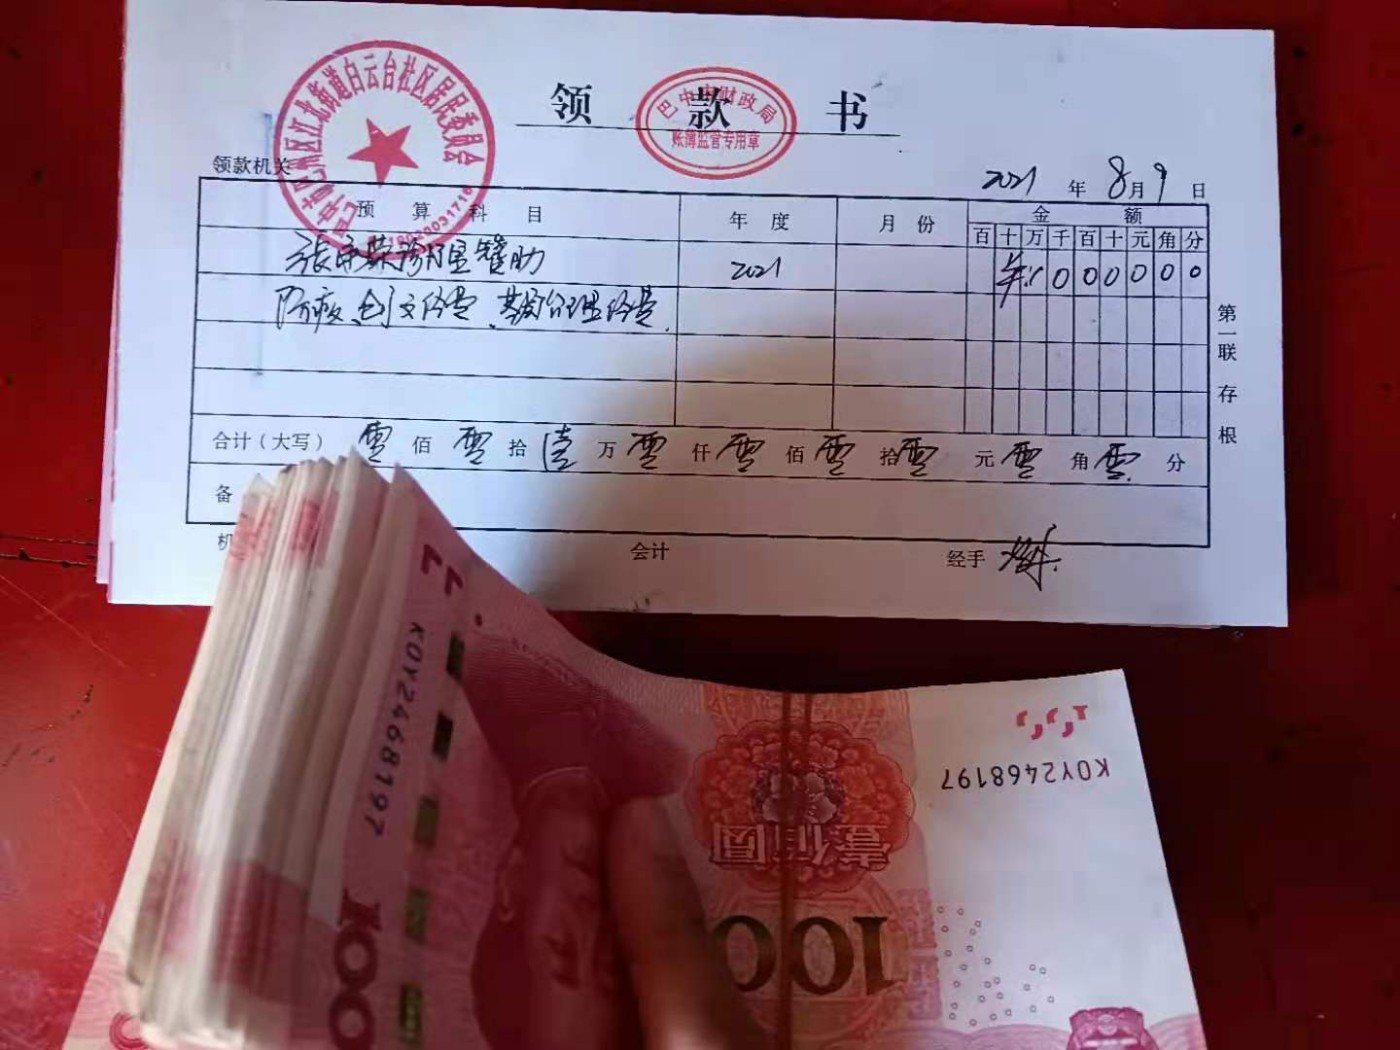 领款书
巴中市财政局
账簿监管专用章
巴中市巴州区江北街道白云台社区居民委员会
领款机关
2021年8月9日
预算科目 年度 月份 金额
百十万千百十元角分
赞助 2021 ¥1000000
防疫、创文经费、基层治理经费
合计(大写) 零佰零拾壹万零仟零佰零拾零元零角零分
备
机 会计 经手
第一联存根
K0Y2468197
100
K0Y2468197
壹佰圆
100